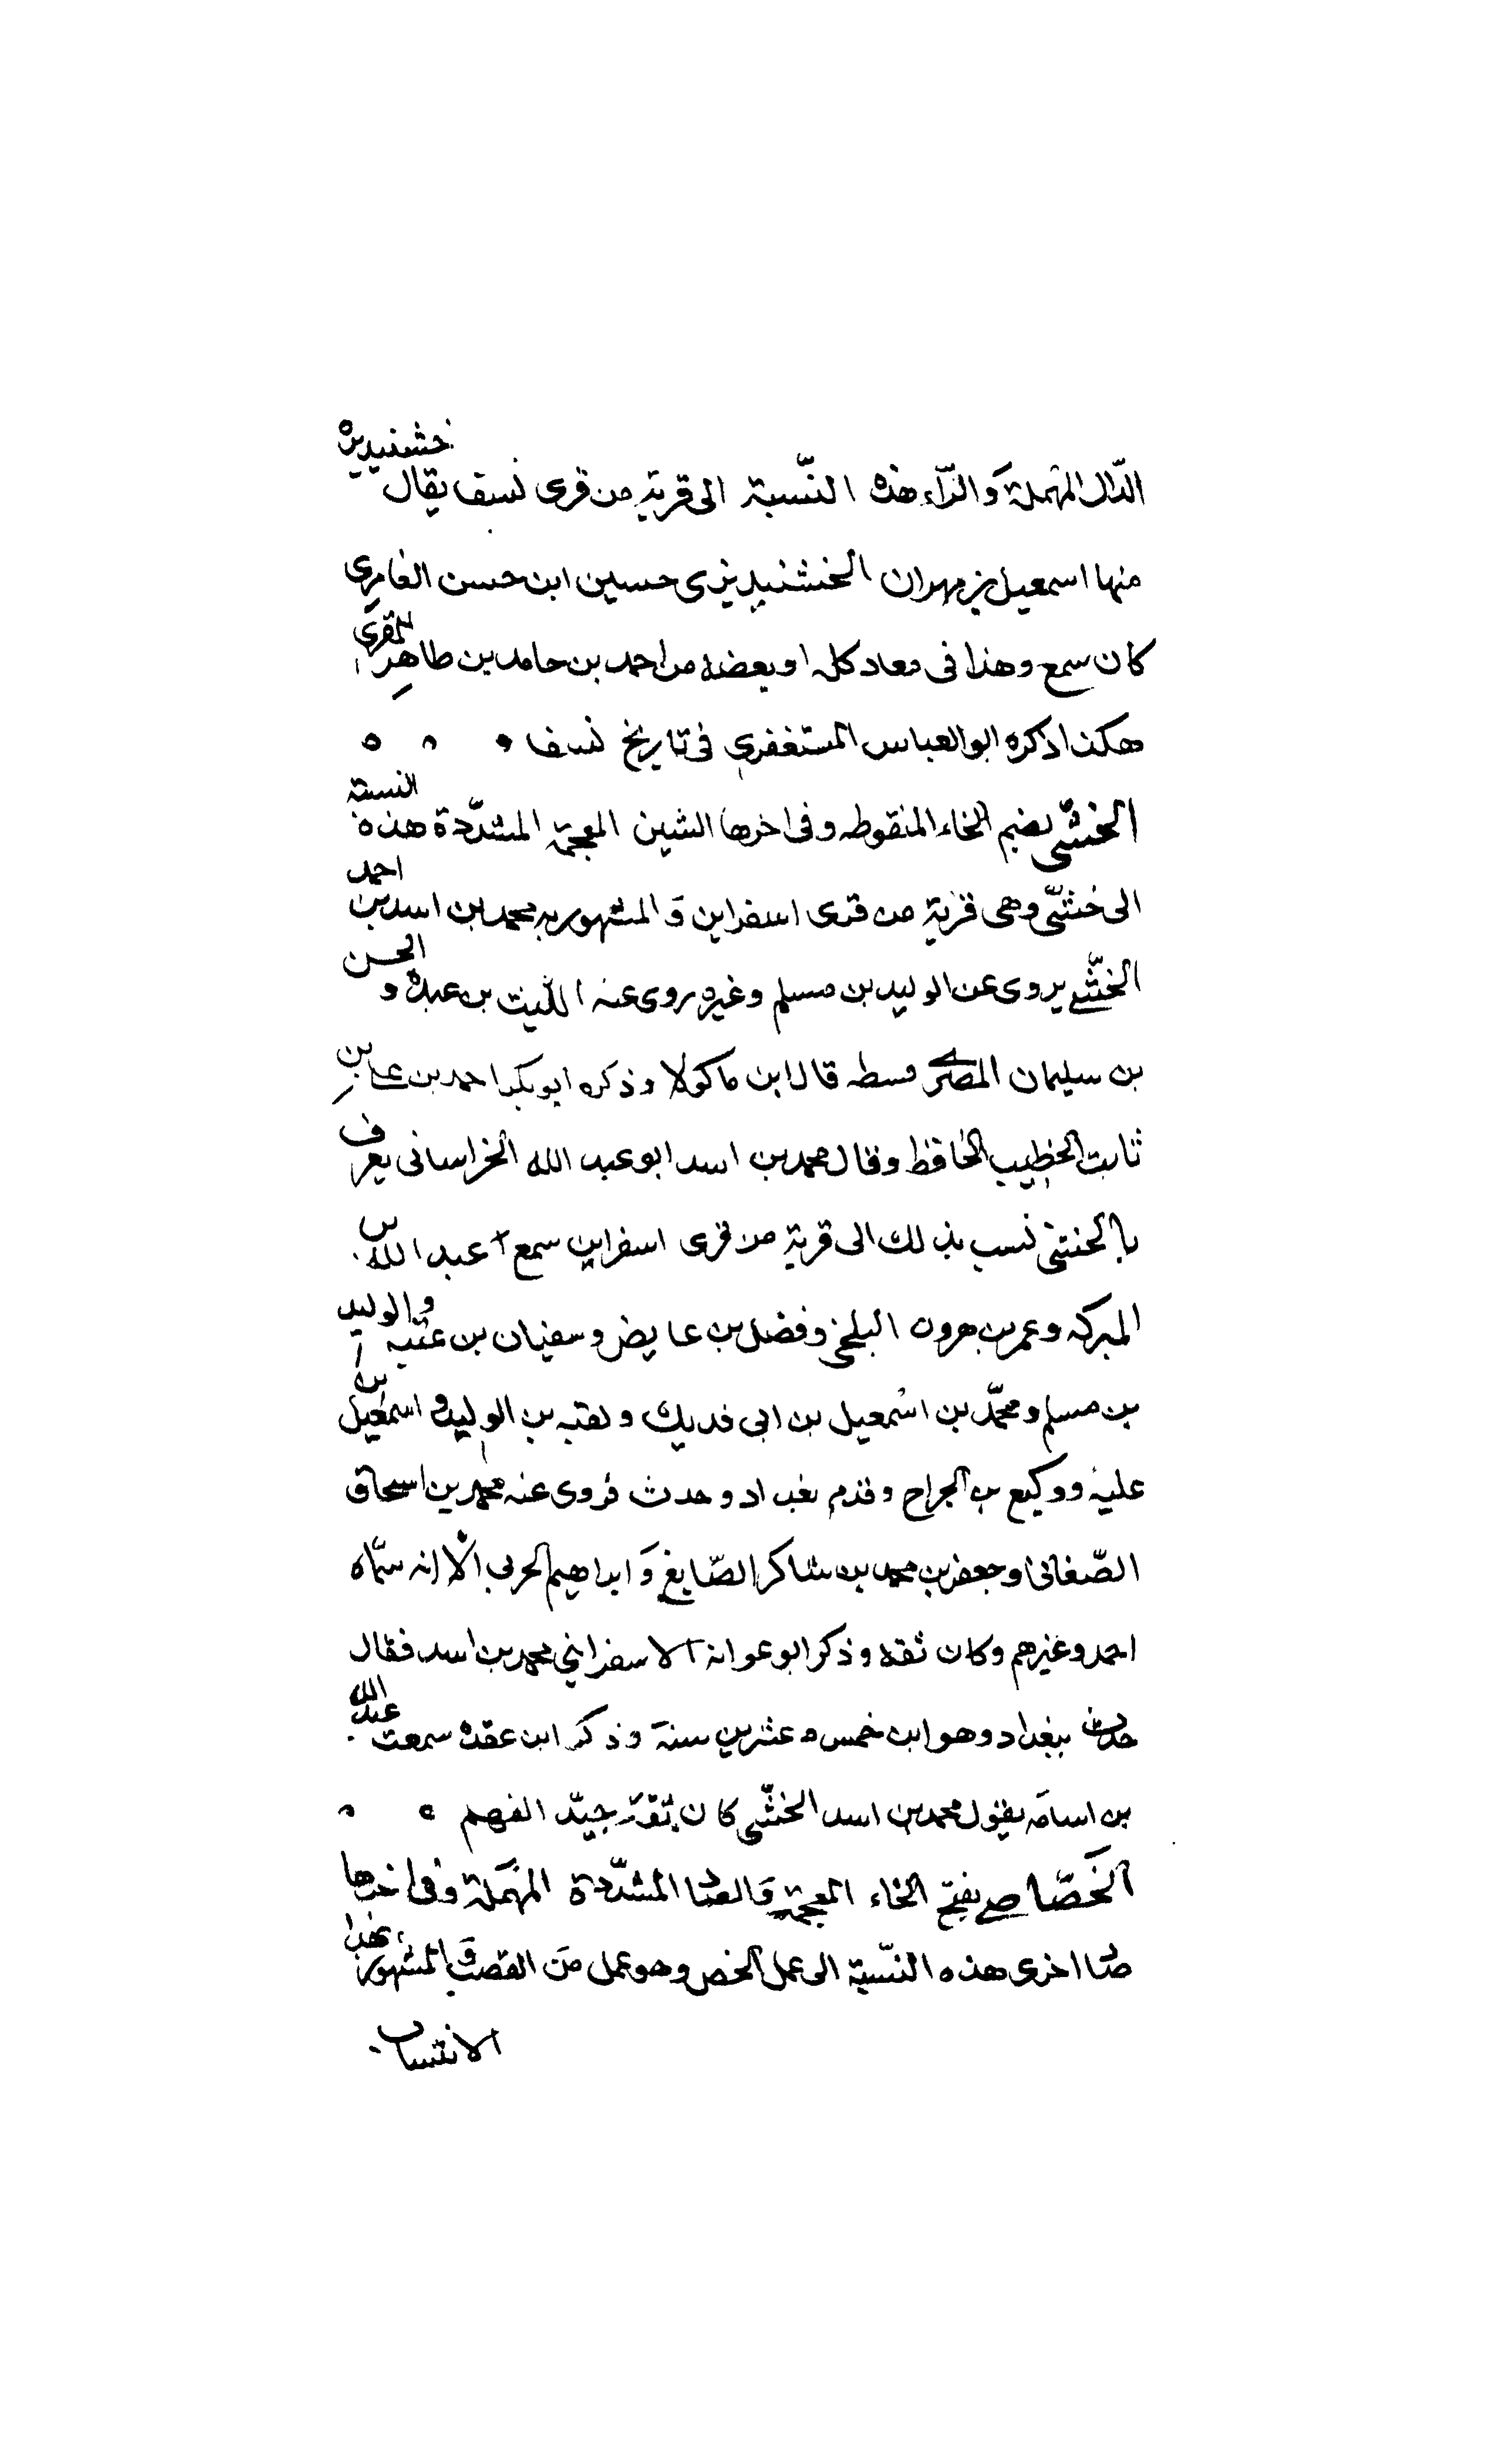 الدّال المهملة والرّاء هذه النّسبة الى قرية من قرى نسف يقال خشنيديزه
منها اسمعيل بن مهران الخشنيديزى حسين ابن حسن العامرى
كان سمع وهذا فى معاد كله او بعضه من احمد بن حامد بن طاهر المقرى
هكذا ذكره ابو العباس المستغفرى فى تاريخ نسف
الخشى بضم الخاء المنقوطه وفى اخرها الشين المعجمة المشدّدة هذه النسبة
الى خشّى وهى قرية من قرى اسفراين والمشهور به محمد بن اسد بن احمد
الخشّى يروى عن الوليد بن مسلم وغيره روى عنه الليث بن عبده و الحسن
بن سليمان المصرى قسطه قال ابن ماكولا وذكره ابو بكر احمد بن على بن
ثابت الخطيب الحافظ وقال محمد بن اسد ابو عبد الله الخراسانى يعرف
بالخشى نسب بذلك الى قرية من قرى اسفراين سمع عبد الله بن
المبركه وعمر بن هرون البلخى وفضل بن عايض وسفيان بن عيينه والوليد
بن مسلم ومحمّد بن اسمعيل بن ابى فديك وبقيه بن الوليد و اسمعيل بن
عليه ووكيع بن الجراح وقدم بغداد وحدث فروى عنه محمد بن اسحاق
الصّغانى وجعفر بن محمد بن شاكر الصّايغ وَابراهيم الحربى الا انه سمّاه
احمد وغيرهم وكان ثقه وذكر ابو عوانه الاسفراني محمد بن اسد فقال
حدث ببغداد وهو ابن خمس و عشرين سنة وذكر ابن عقده سمعت عبد الله
بن اسامه يقول محمد بن اسد الخشّى كان ثقة جيّد الفهم
الخَصّاصى بفتح الخاء المعجمة وَالصاد المشدّدة المهملة وفى اخرها
صاد اخرى هذه النّسبة الى عمل الخص وهو عمل من القصب والمشهور بهذا
الانتساب